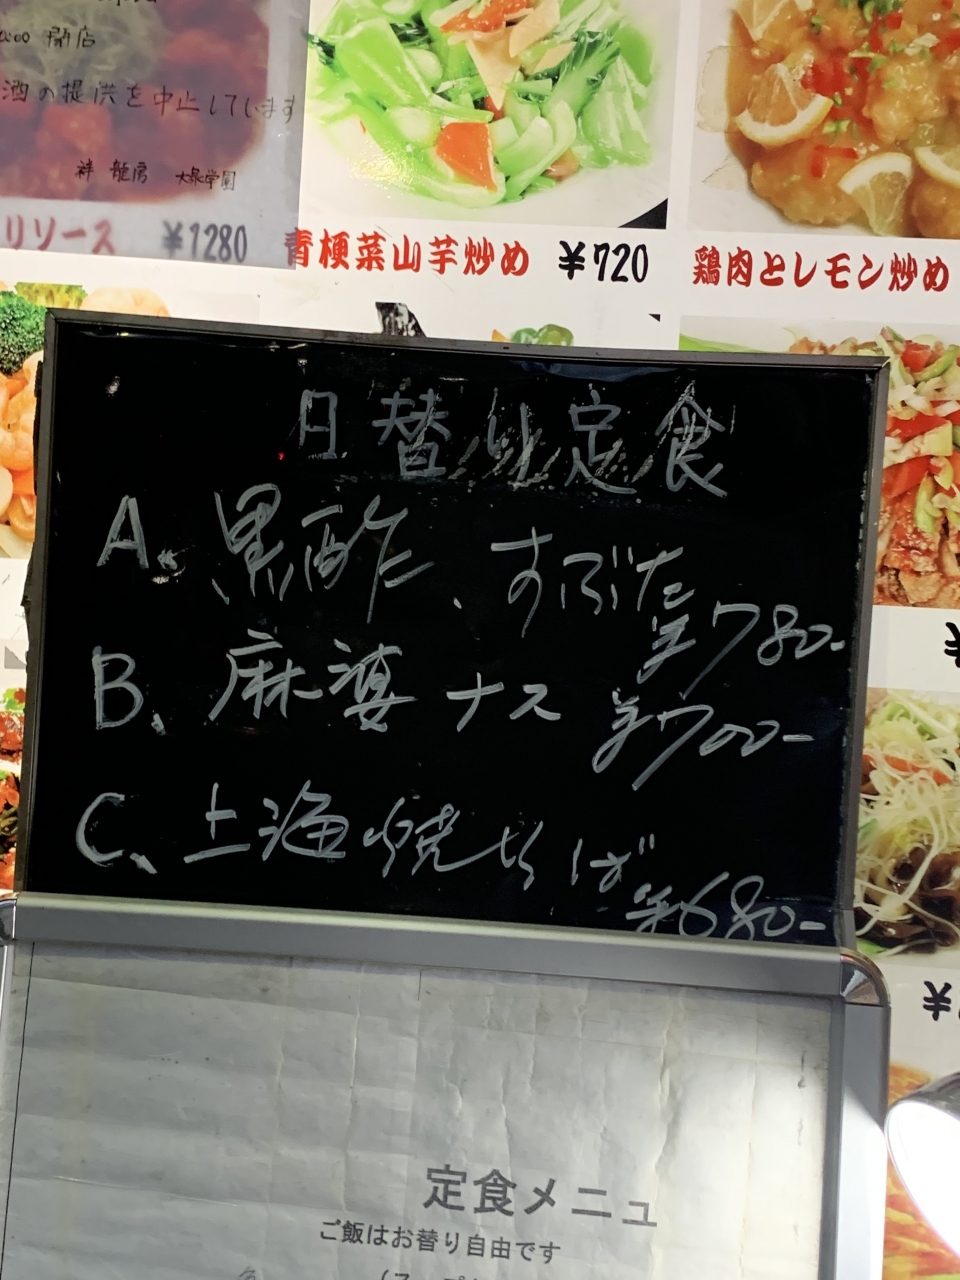 開店
酒の提供を中止しています
リソース ¥1280
青梗菜山芋炒め ¥720
鶏肉とレモン炒め
日替り定食
A、黒酢、すぶた
¥780-
B、麻婆ナス ¥700-
C、上海焼そば
¥680-
定食メニュ
ご飯はお替り自由です